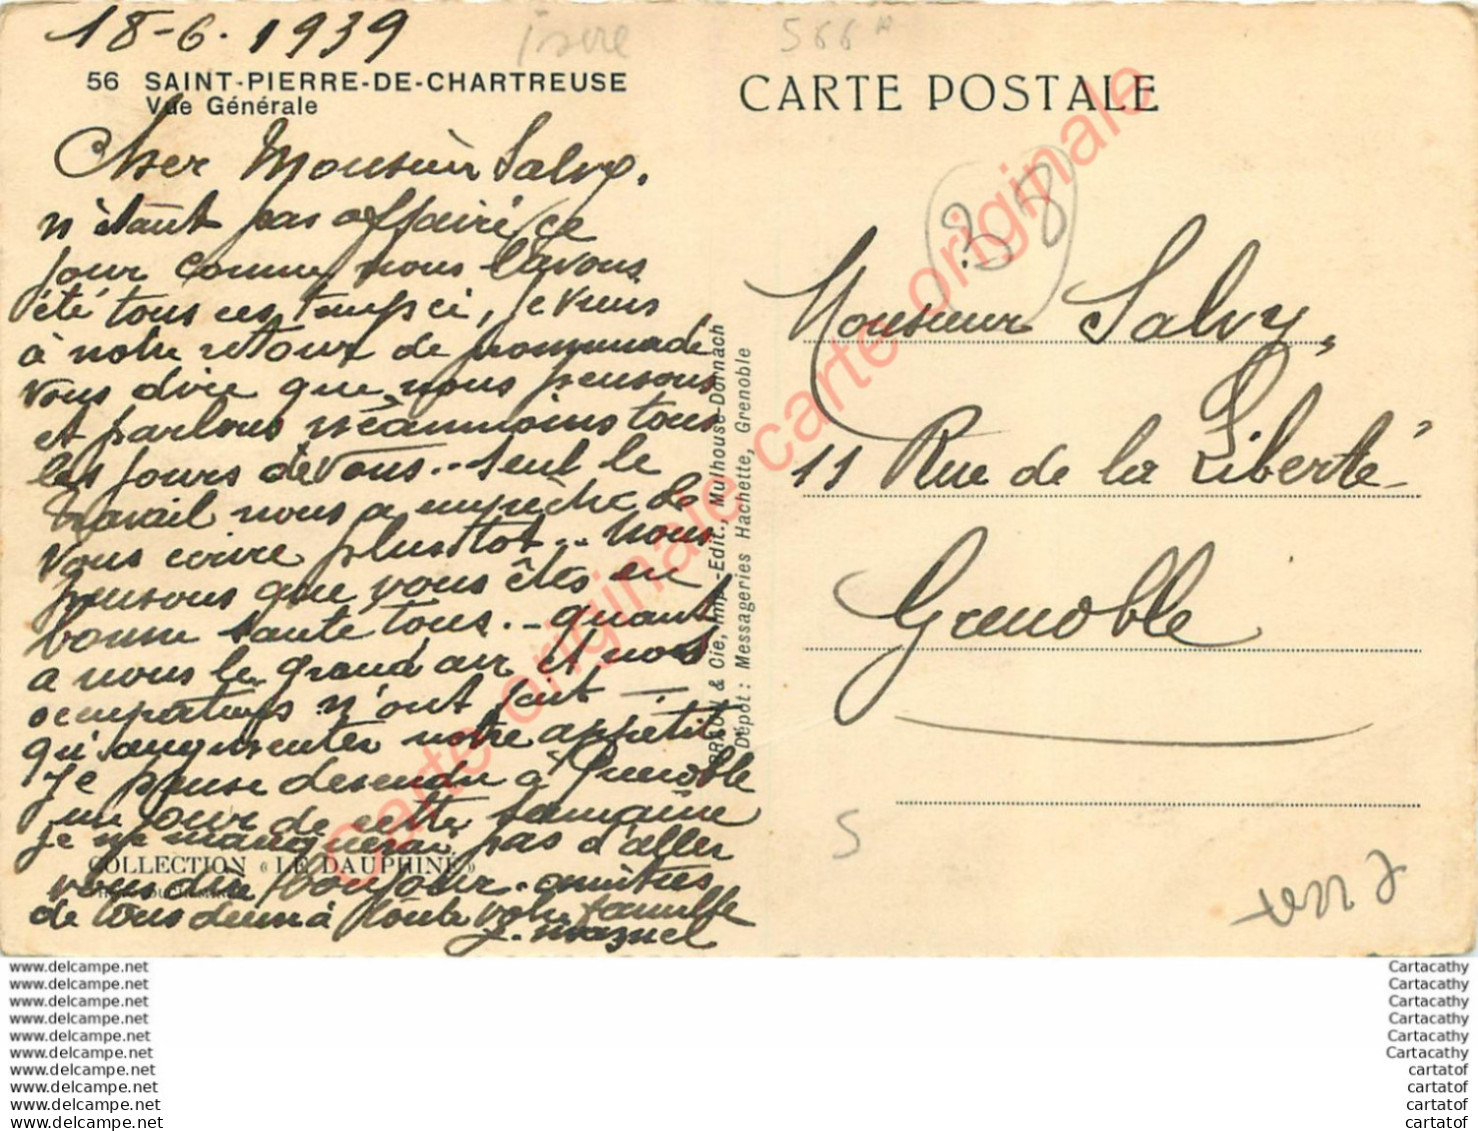 18-6. 1939
Isere
566 A
56 SAINT-PIERRE-DE-CHARTREUSE
Vue Générale
Cher Monsieur Salvy.
n'étant pas affairé ce
jour comme nous l'avons
été tous ces temps ci, je viens
à notre retour de promenade
vous dire que nous pensons
et parlons néanmoins tous
les jours de vous.. seul le
travail nous a empêché de
vous ecrire plustot... Nous
pensons que vous êtes en
bonne sante tous. - quant
a nous le grand air et nos
occupations n'ont fait —
qu'augmenter notre appétit
Je pense descendre à Grenoble
un jour de cette semaine
je ne manquerai pas d'aller
vous dire bonjour. amitiés
de tous deux à toute votre famille
J. Mazuel
COLLECTION « LE DAUPHINÉ »
CARTE POSTALE
38
Monsieur Salvy,
11 Rue de la Liberté
Grenoble
& Cie, Imp.-Edit., Mulhouse-Dornach
Dépôt : Messageries Hachette, Grenoble
S
Carte originale carte originale
www.delcampe.net
www.delcampe.net
www.delcampe.net
www.delcampe.net
www.delcampe.net
www.delcampe.net
www.delcampe.net
www.delcampe.net
www.delcampe.net
www.delcampe.net
Cartacathy
Cartacathy
Cartacathy
Cartacathy
Cartacathy
Cartacathy
cartatof
cartatof
cartatof
cartatof